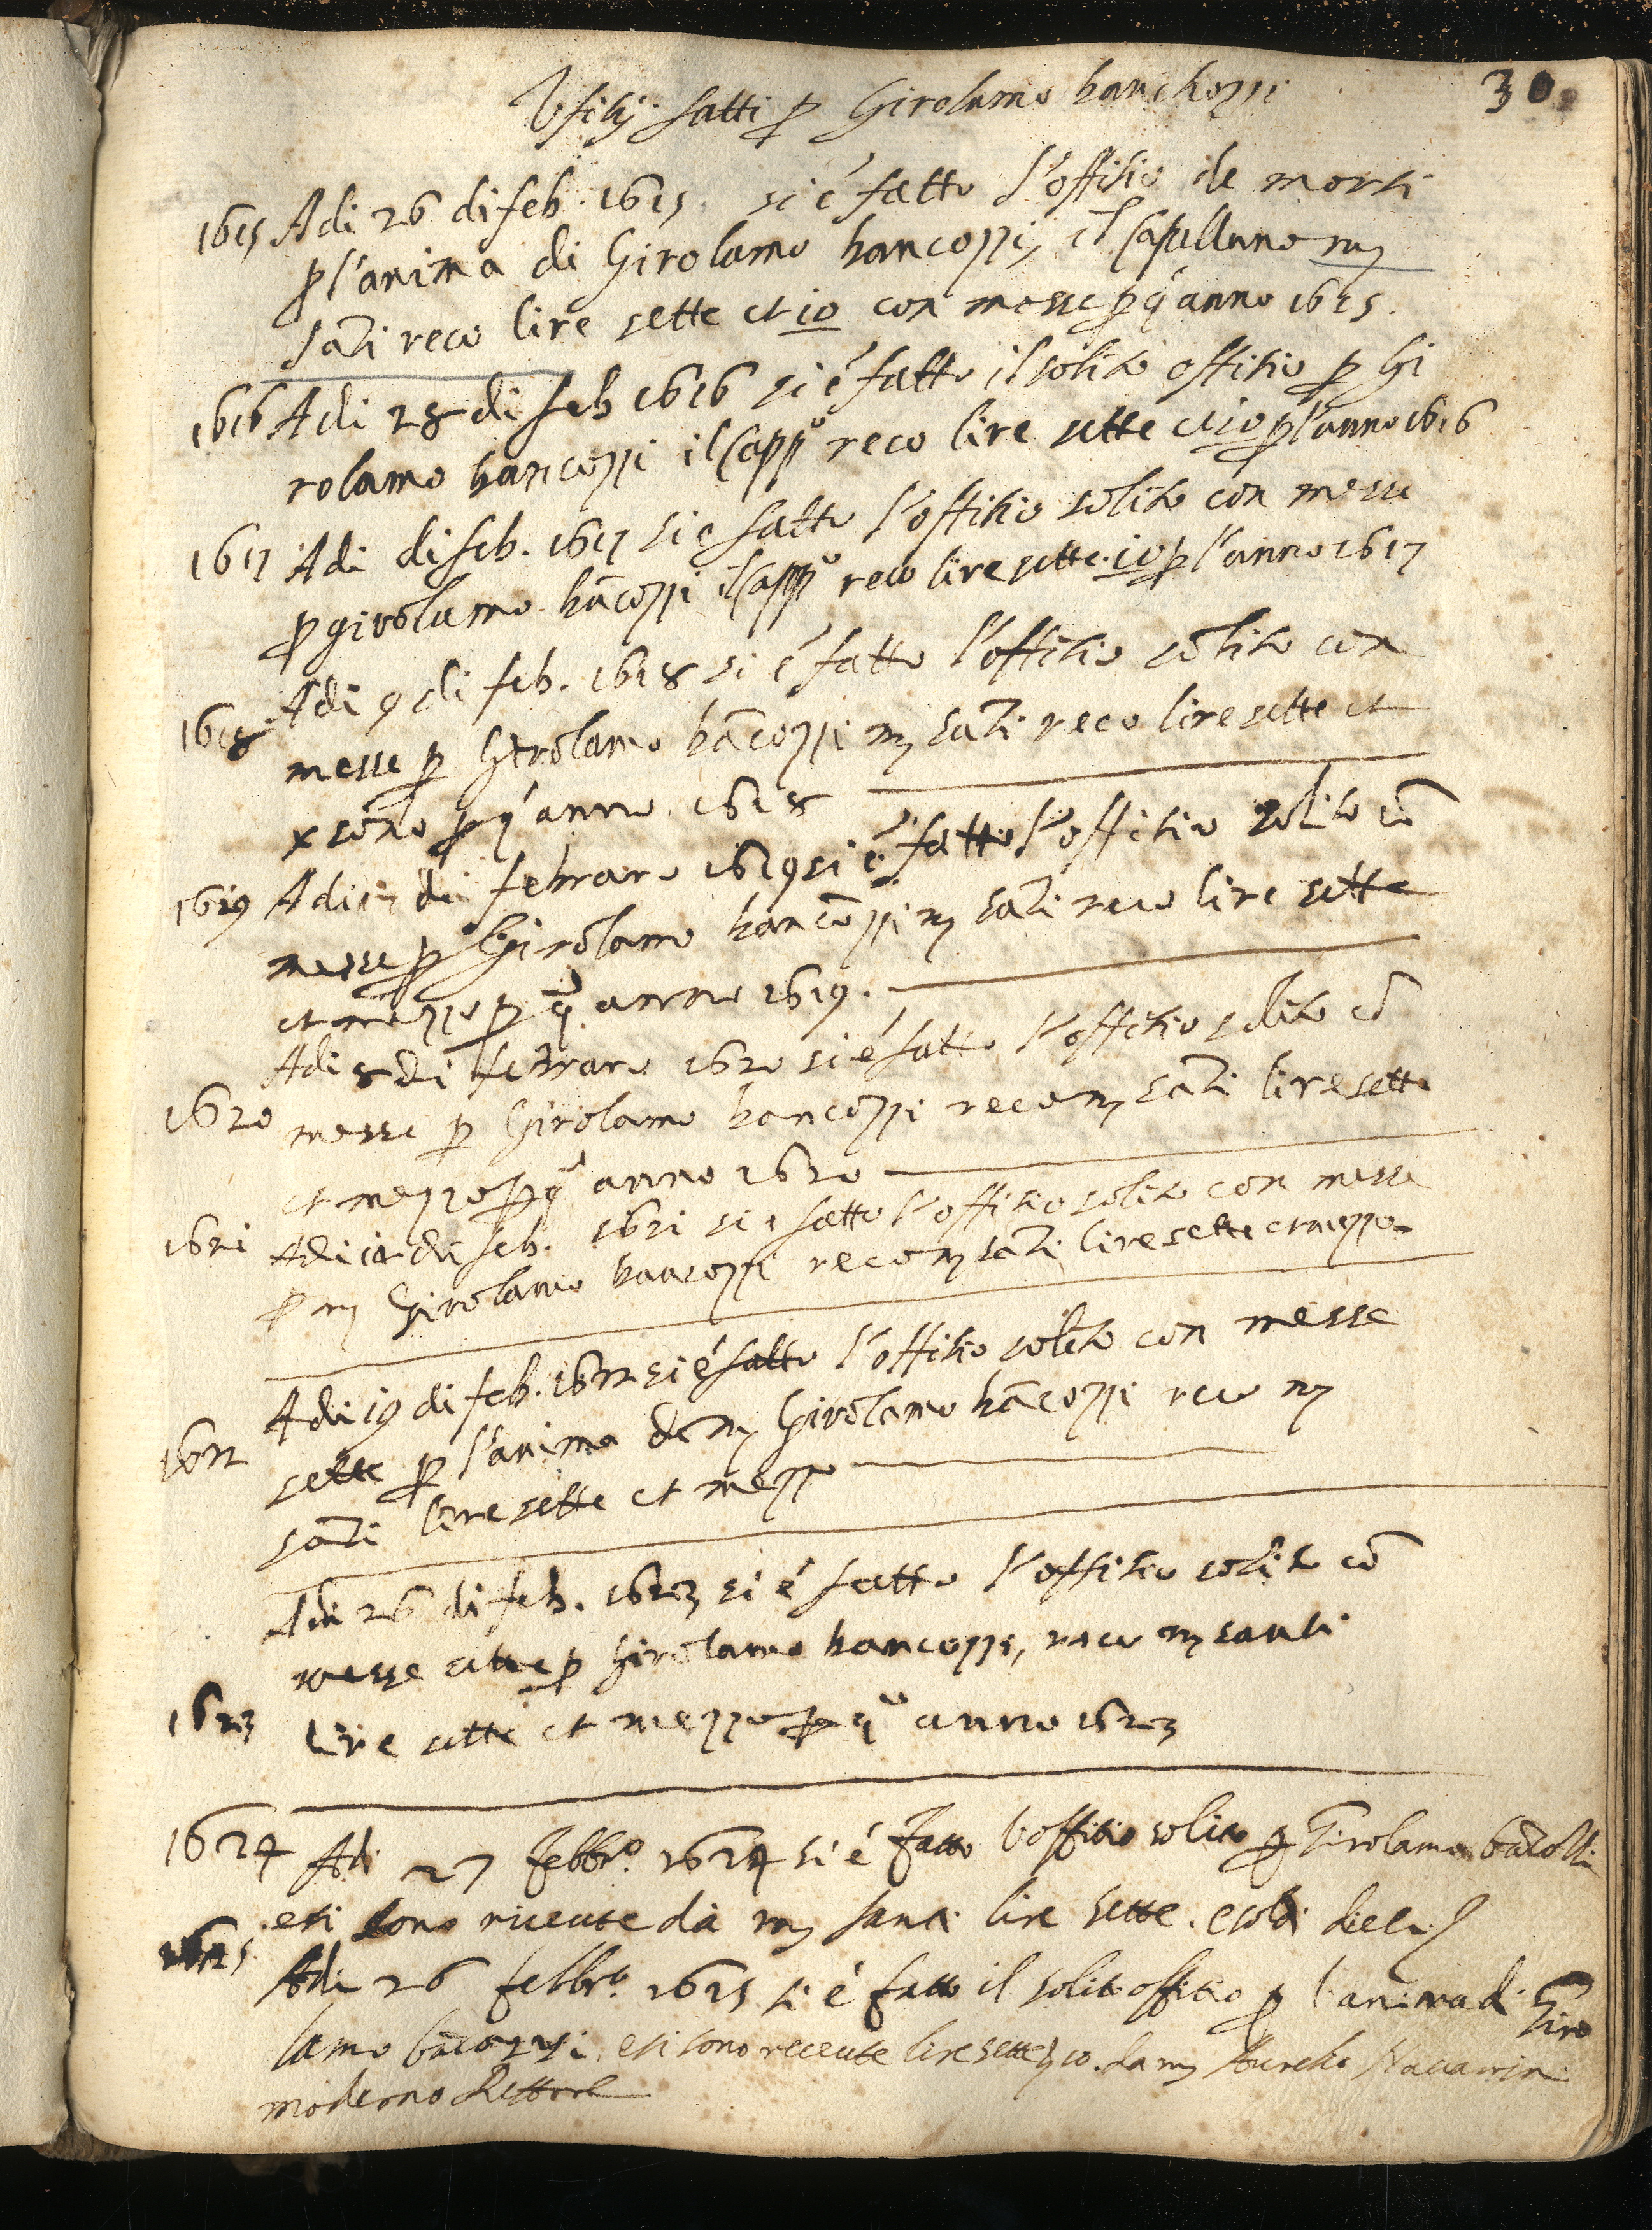 30
Ufitij fatti p Girolamo banchozzi
1615 Adi 26 di feb. 1615. si é fatto l'offitio de morti
p l'anima di Girolamo bancozzi, il Capellano m
Sāti reco lire sette et 10 con messe p q anno 1615.
1616 Adi 28 di feb 1616 si é fatto il solito offitio p Gi
rolamo bancozzi il Capp.o reco lire sette et 10 p l'anno 1616
1617 Adi di feb. 1617 si e fatto l'offitio solito con messe
p girolamo bācozzi il Capp.o reco lire sette. 10 p l'anno 1617
1618 Adi 9 di feb. 1618 si é fatto l'offitio solito con
messe p Girolamo bācozzi m Sāti reco lire sette et
x p q anno 1618
1619 Adi di febraro 1619 si é fatto l'offitio solito cō
messe p Girolamo bancozzi m Sāti reco lire sette
et mezzo p q anno 1619.
1620 Adi 8 di febraro 1620 si é fatto l'offitio solito cō
messe p Girolamo bancozzi reco m Sāti lire sette
et mezzo p q anno 1620
1621 Adi di feb. 1621 si e fatto l'offitio solito con messe
p m Girolamo bancozzi reco m Sāti lire sette et mezzo
1622 Adi 19 di feb. 1622 si é fatto l'offitio solito con messe
sette p l'anima de m Girolamo bācozzi reco m
Sāti lire sette et mezzo
1623 Adi 26 di feb. 1623 si é fatto l'offitio solito cō
messe sette p Girolamo bancozzi, reco m santi
lire sette et mezzo p q.o anno 1623
1624 Adi 27 febbr.o 1624 si é fatto l'offitio solito p Girolamo
e si sono riceute da m santi lire sette. e soldi dieci
1625. Adi 26 febbr.o 1625 si é fatto il solito offitio p l'anima di Giro
lamo e si sono receute lire sette 10. da m Aurelio
moderno Rettore